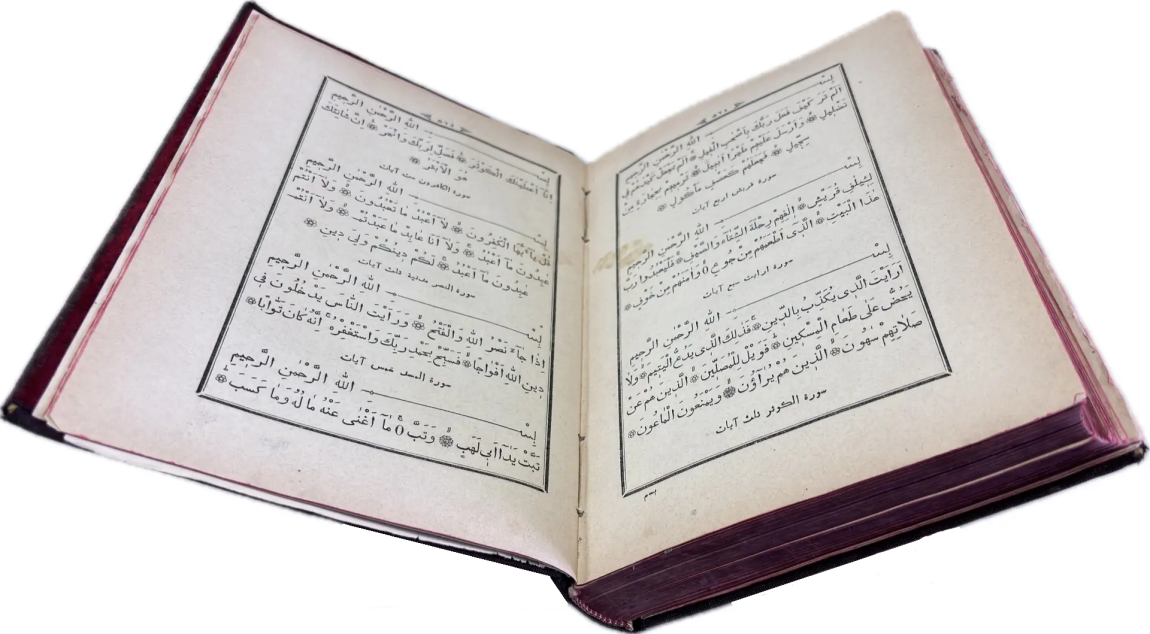 بِسْمِ اللهِ الرَّحْمٰنِ الرَّحِيمِ
اَلَمْ تَرَ كَيْفَ فَعَلَ رَبُّكَ بِاَصْحٰبِ الْفِيلِ ۞ اَلَمْ يَجْعَلْ كَيْدَهُمْ فِى
تَضْلِيلٍ ۞ وَاَرْسَلَ عَلَيْهِمْ طَيْرًا اَبَابِيلَ ۞ تَرْمِيهِمْ بِحِجَارَةٍ مِنْ
سِجِّيلٍ ۞ فَجَعَلَهُمْ كَعَصْفٍ مَأْكُولٍ ۞
سورة قريش اربع آيات
بِسْمِ اللهِ الرَّحْمٰنِ الرَّحِيمِ
لِاِيلٰفِ قُرَيْشٍ ۞ اٖلٰفِهِمْ رِحْلَةَ الشِّتَاءِ وَالصَّيْفِ ۞ فَلْيَعْبُدُوا رَبَّ
هٰذَا الْبَيْتِ ۞ اَلَّذِى اَطْعَمَهُمْ مِنْ جُوعٍ ۞ وَاٰمَنَهُمْ مِنْ خَوْفٍ ۞
سورة ارايت سبع آيات
بِسْمِ اللهِ الرَّحْمٰنِ الرَّحِيمِ
اَرَاَيْتَ الَّذِى يُكَذِّبُ بِالدِّينِ ۞ فَذٰلِكَ الَّذِى يَدُعُّ الْيَتِيمَ ۞ وَلَا
يَحُضُّ عَلٰى طَعَامِ الْمِسْكِينِ ۞ فَوَيْلٌ لِلْمُصَلِّينَ ۞ اَلَّذِينَ هُمْ عَنْ
صَلَاتِهِمْ سَاهُونَ ۞ اَلَّذِينَ هُمْ يُرَاؤُنَ ۞ وَيَمْنَعُونَ الْمَاعُونَ ۞
سورة الكوثر ثلث آيات
بِسْمِ اللهِ الرَّحْمٰنِ الرَّحِيمِ
اِنَّا اَعْطَيْنَاكَ الْكَوْثَرَ ۞ فَصَلِّ لِرَبِّكَ وَانْحَرْ ۞ اِنَّ شَانِئَكَ
هُوَ الْاَبْتَرُ ۞
سورة الكافرون ست آيات
بِسْمِ اللهِ الرَّحْمٰنِ الرَّحِيمِ
قُلْ يَا اَيُّهَا الْكٰفِرُونَ ۞ لَا اَعْبُدُ مَا تَعْبُدُونَ ۞ وَلَا اَنْتُمْ
عٰبِدُونَ مَا اَعْبُدُ ۞ وَلَا اَنَا عَابِدٌ مَا عَبَدْتُمْ ۞ وَلَا اَنْتُمْ
عٰبِدُونَ مَا اَعْبُدُ ۞ لَكُمْ دِينُكُمْ وَلِىَ دِينِ ۞
سورة النصر مدنية ثلث آيات
بِسْمِ اللهِ الرَّحْمٰنِ الرَّحِيمِ
اِذَا جَاءَ نَصْرُ اللهِ وَالْفَتْحُ ۞ وَرَاَيْتَ النَّاسَ يَدْخُلُونَ فِى
دِينِ اللهِ اَفْوَاجًا ۞ فَسَبِّحْ بِحَمْدِ رَبِّكَ وَاسْتَغْفِرْهُ اِنَّهُ كَانَ تَوَّابًا ۞
سورة المسد خمس آيات
بِسْمِ اللهِ الرَّحْمٰنِ الرَّحِيمِ
تَبَّتْ يَدَا اَبِى لَهَبٍ ۞ وَتَبَّ ۞ مَا اَغْنٰى عَنْهُ مَالُهُ وَمَا كَسَبَ ۞